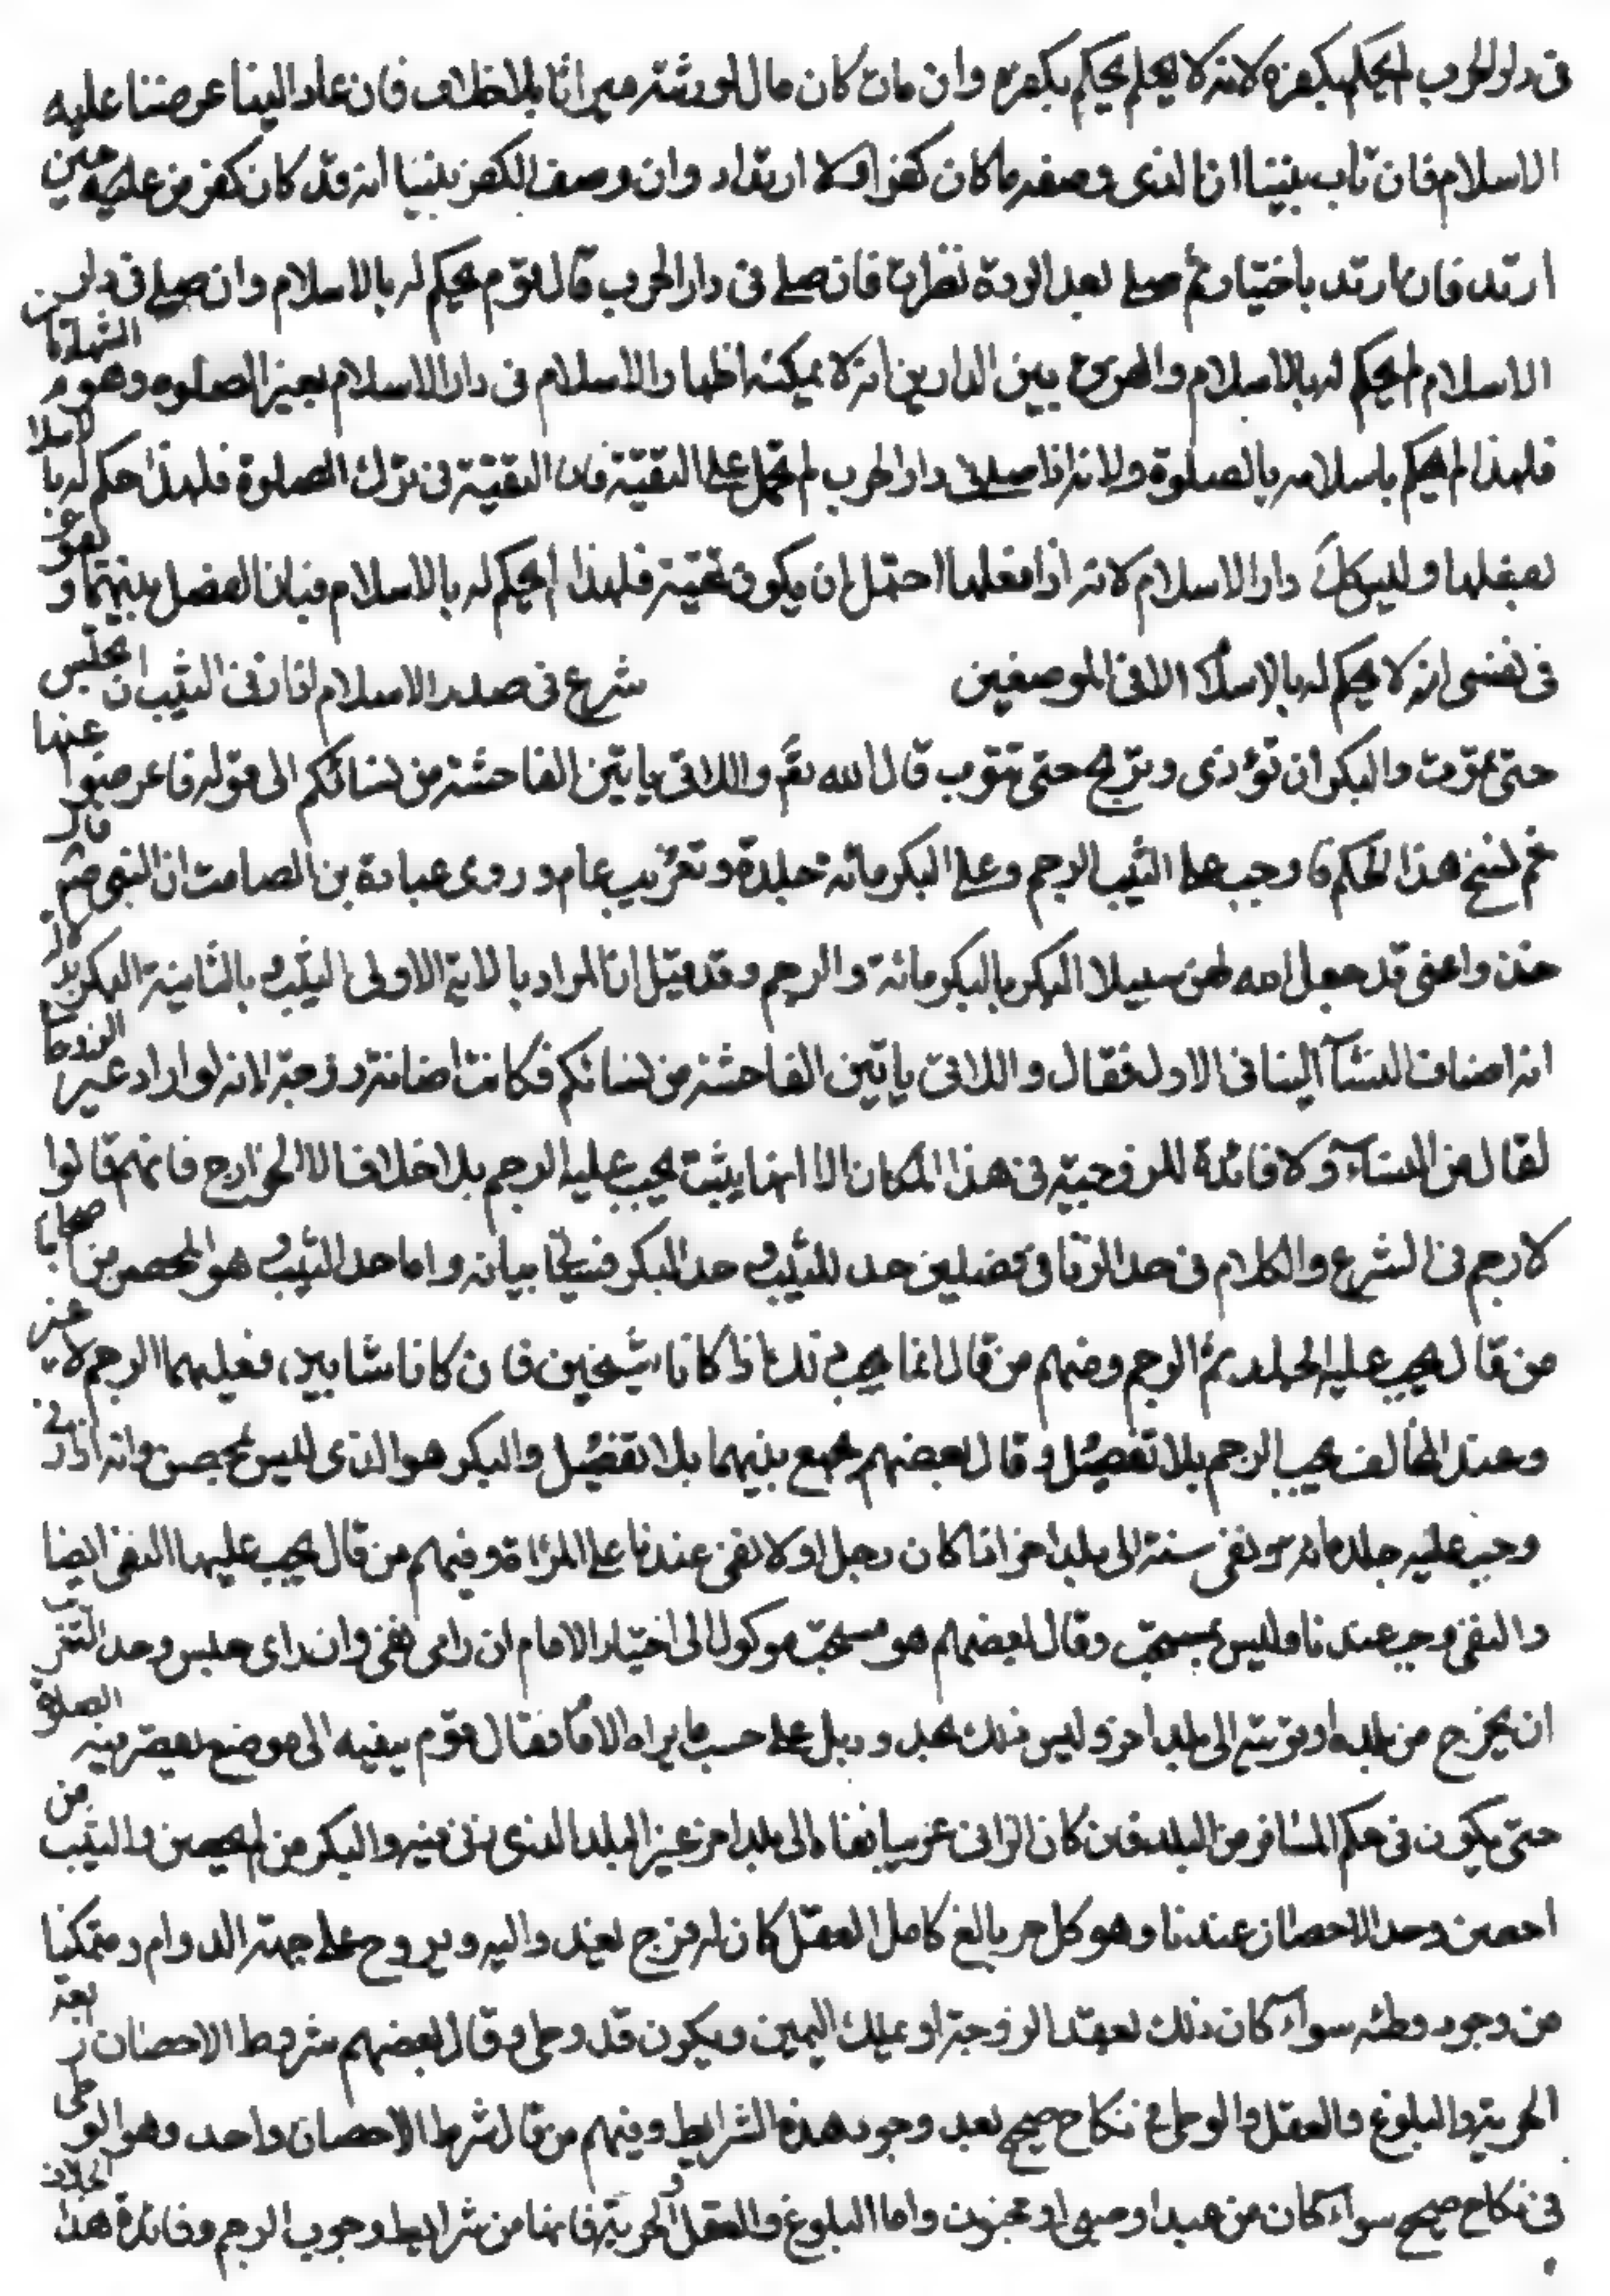 فى دار الحرب لم يحكم بكفره لانه لا يعلم يحكم بكفره وان مات كان ماله لورثته ميراثا بلا خلاف فان عاد الينا عرضنا عليه
الاسلام فان تاب بينا ان الذى وصفه ما كان كفرا ولا ارتداد وان وصف الكفر بينا انه قد كان كفر من عليه حين
ارتد فان ارتد باختياره ثم صلى بعد الردة نظرت فان صلى فى دار الحرب قال قوم يحكم له بالاسلام وان صلى فى دار
الاسلام لم يحكم له بالاسلام والفرق بين الدارين انه لا يمكنه اظهار الاسلام فى دار الاسلام بغير الصلوه وهو الشهادتان
فلهذا لم يحكم باسلامه بالصلوة ولانه اذا صلى فى دار الحرب لم تحمل على التقيّة فان التقيّة فى ترك الصلوة فلهذا حكم له بالاسلا
بفعلها وليس كك دار الاسلام لانه اذا فعلها احتمل ان يكون تقيّة فلهذا لم يحكم له بالاسلام فبان الفصل بينهما و
فى نفسى انه لا يحكم له بالاسلام الا فى الموضعين شرع فى صدر الاسلام اذا زنى الثيب ان تحبس
حتى تموت والبكر ان تؤذى وتوبخ حتى تتوب قال الله تع واللاتى ياتين الفاحشة من نسائكم الى قوله فاعرضوا عنها
ثم نسخ هذا الحكم فاوجب على الثيب الرجم وعلى البكر مائة جلدة وتغريب عام وروى عبادة بن الصامت ان النبى ص قال
خذوا عنى قد جعل الله لهن سبيلا البكر بالبكر مائة والرجم وقد قيل ان المراد بالاية الاولى الثيب وبالثانية البكر بد لالة
انه اضاف النسآ الينا فى الاولى فقال واللاتى ياتين الفاحشة من نسائكم فكانت اضافة زوجية لانه لو اراد غير الزوجات
لقال من النساء ولا فائدة للزوجية فى هذا المكان الا انها يثبت يجب عليه الرجم بلا خلاف الا الخوارج فانهم قالوا
لا رجم فى الشرع والكلام فى حد الزنا فى فصلين حد للثيب وحد البكر فسيأتى بيانه واما حد الثيب وهو المحصن من اصحابنا
من قال يجب عليه الجلد ثم الرجم ومنهم من قال انما يجب ذلك اذا كانا شيخين فان كانا شابين فعليهما الرجم لا غير
وعند المخالف يجب الرجم بلا تفصيل وقال بعضهم يجمع بينهما بلا تفصيل والبكر هو الذى ليس بمحصن وانه اذا زنى
وجب عليه جلد مائة ونفى سنة الى بلد اخر اذا كان رجلا ولا نفى عندنا على المراة وفيهم من قال يجب عليها النفى ايضا
والنفى وجب عندنا وليس بمستحب وقال بعضهم هو مستحب موكول الى اختيار الامام ان راى نفى وان راى حبس وحد التغريب
ان يخرج من بلده او قريته الى بلد اخر وليس ذلك بمحدود بل على حسب ما يراه الامام فقال قوم ينفيه الى موضع يقصر فيه الصلوة
حتى يكون فى حكم المسافر من البلد فان كان الزانى غريبا نفاه الى بلد اخر غير البلد الذى زنى فيه والبكر من لم يحصن والثيب من
احصن وحد الاحصان عندنا وهو كل حر بالغ كامل العقل كان له فرج يغدو اليه ويروح على جهة الدوام ومتمكنا
من وجود وطئه سواء كان ذلك بعقد الزوجية او بملك اليمين ويكون قد وطى وقال بعضهم شروط الاحصان اربعة
الحرية والبلوغ والعقل والوطى فى نكاح صحيح بعد وجود هذه الشرايط وفيهم من قال شرط الاحصان واحد وهو الوطى
فى نكاح صحيح سواء كان من عبد او صبى او مجنون واما البلوغ والعقل والحرية فانها من شرايط وجوب الرجم وفائدة هذا الخلاف